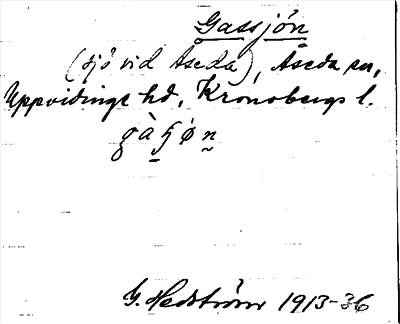 Gassjön
(sjö vid Åseda), Åseda sn,
Uppvidinge hd, Kronobergs l.
gàʃön
G. Hedström 1913-36